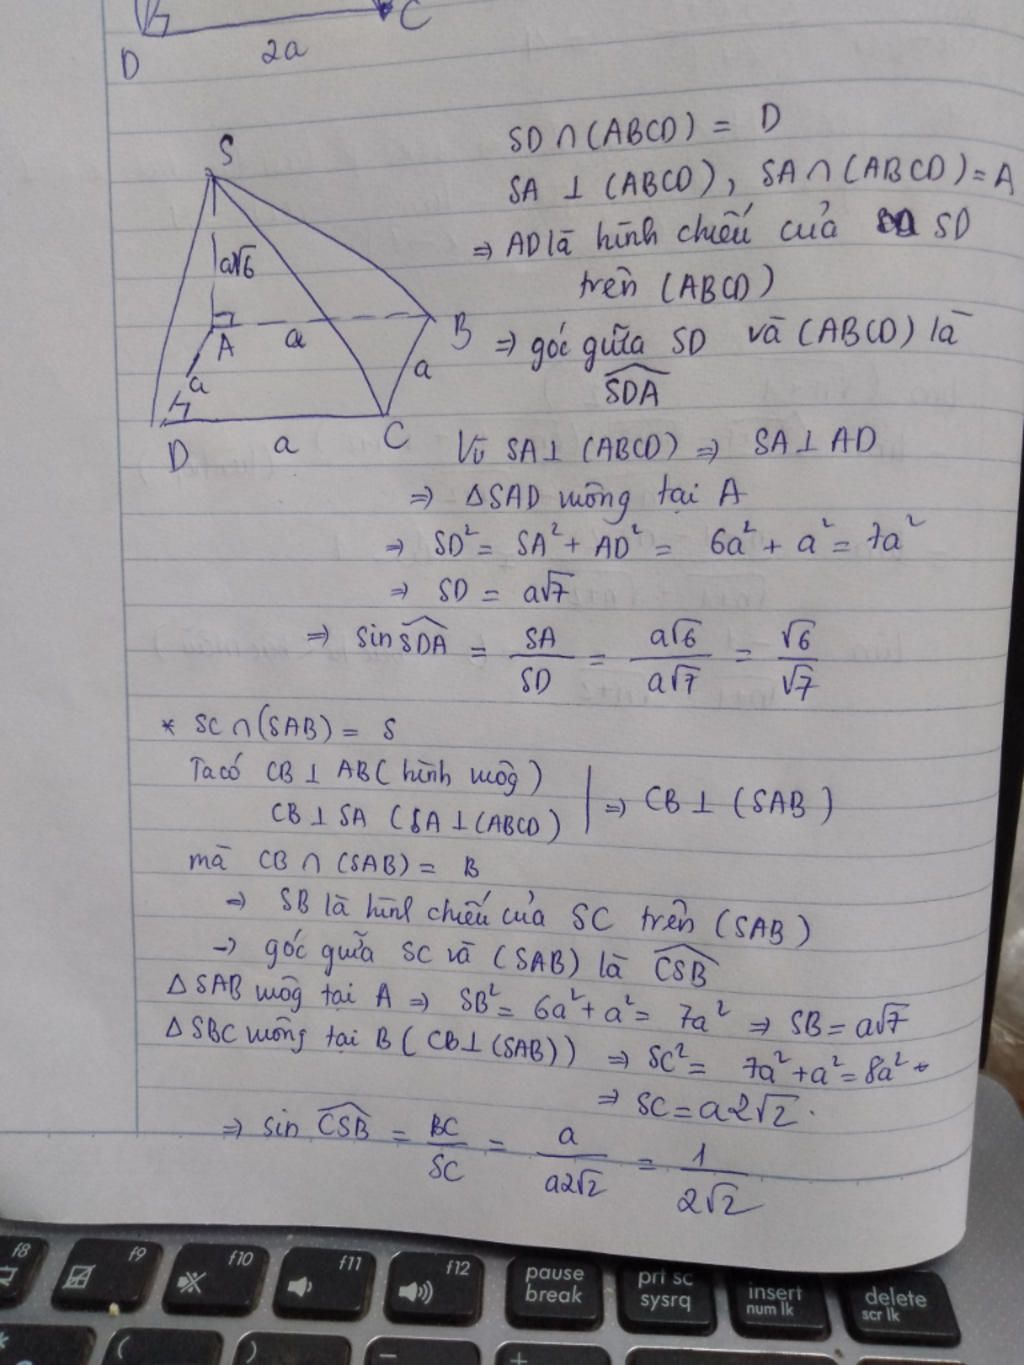 D
C
2a
S
a√6
A
a
B
a
a
D
a
C
SD ∩ (ABCD) = D
SA ⊥ (ABCD), SA ∩ (ABCD) = A
⇒ AD là hình chiếu của SD
trên (ABCD)
⇒ góc giữa SD và (ABCD) là
SDA
Vì SA ⊥ (ABCD) ⇒ SA ⊥ AD
⇒ ΔSAD vuông tại A
⇒ SD² = SA² + AD² = 6a² + a² = 7a²
⇒ SD = a√7
⇒ sin SDA = SA/SD = a√6/a√7 = √6/√7
* SC ∩ (SAB) = S
Ta có CB ⊥ AB (hình vuông)
CB ⊥ SA (SA ⊥ (ABCD) ⇒ CB ⊥ (SAB)
mà CB ∩ (SAB) = B
⇒ SB là hình chiếu của SC trên (SAB)
→ góc giữa SC và (SAB) là CSB
Δ SAB vuông tại A ⇒ SB² = 6a² + a² = 7a² ⇒ SB = a√7
Δ SBC vuông tại B (CB ⊥ (SAB)) ⇒ SC² = 7a² + a² = 8a²
⇒ SC = a2√2.
⇒ sin CSB = BC/SC = a/a2√2 = 1/2√2
f8
f9
f10
f11
f12
pause
break
prt sc
sysrq
insert
num lk
delete
scr lk
*
(
)
-
+